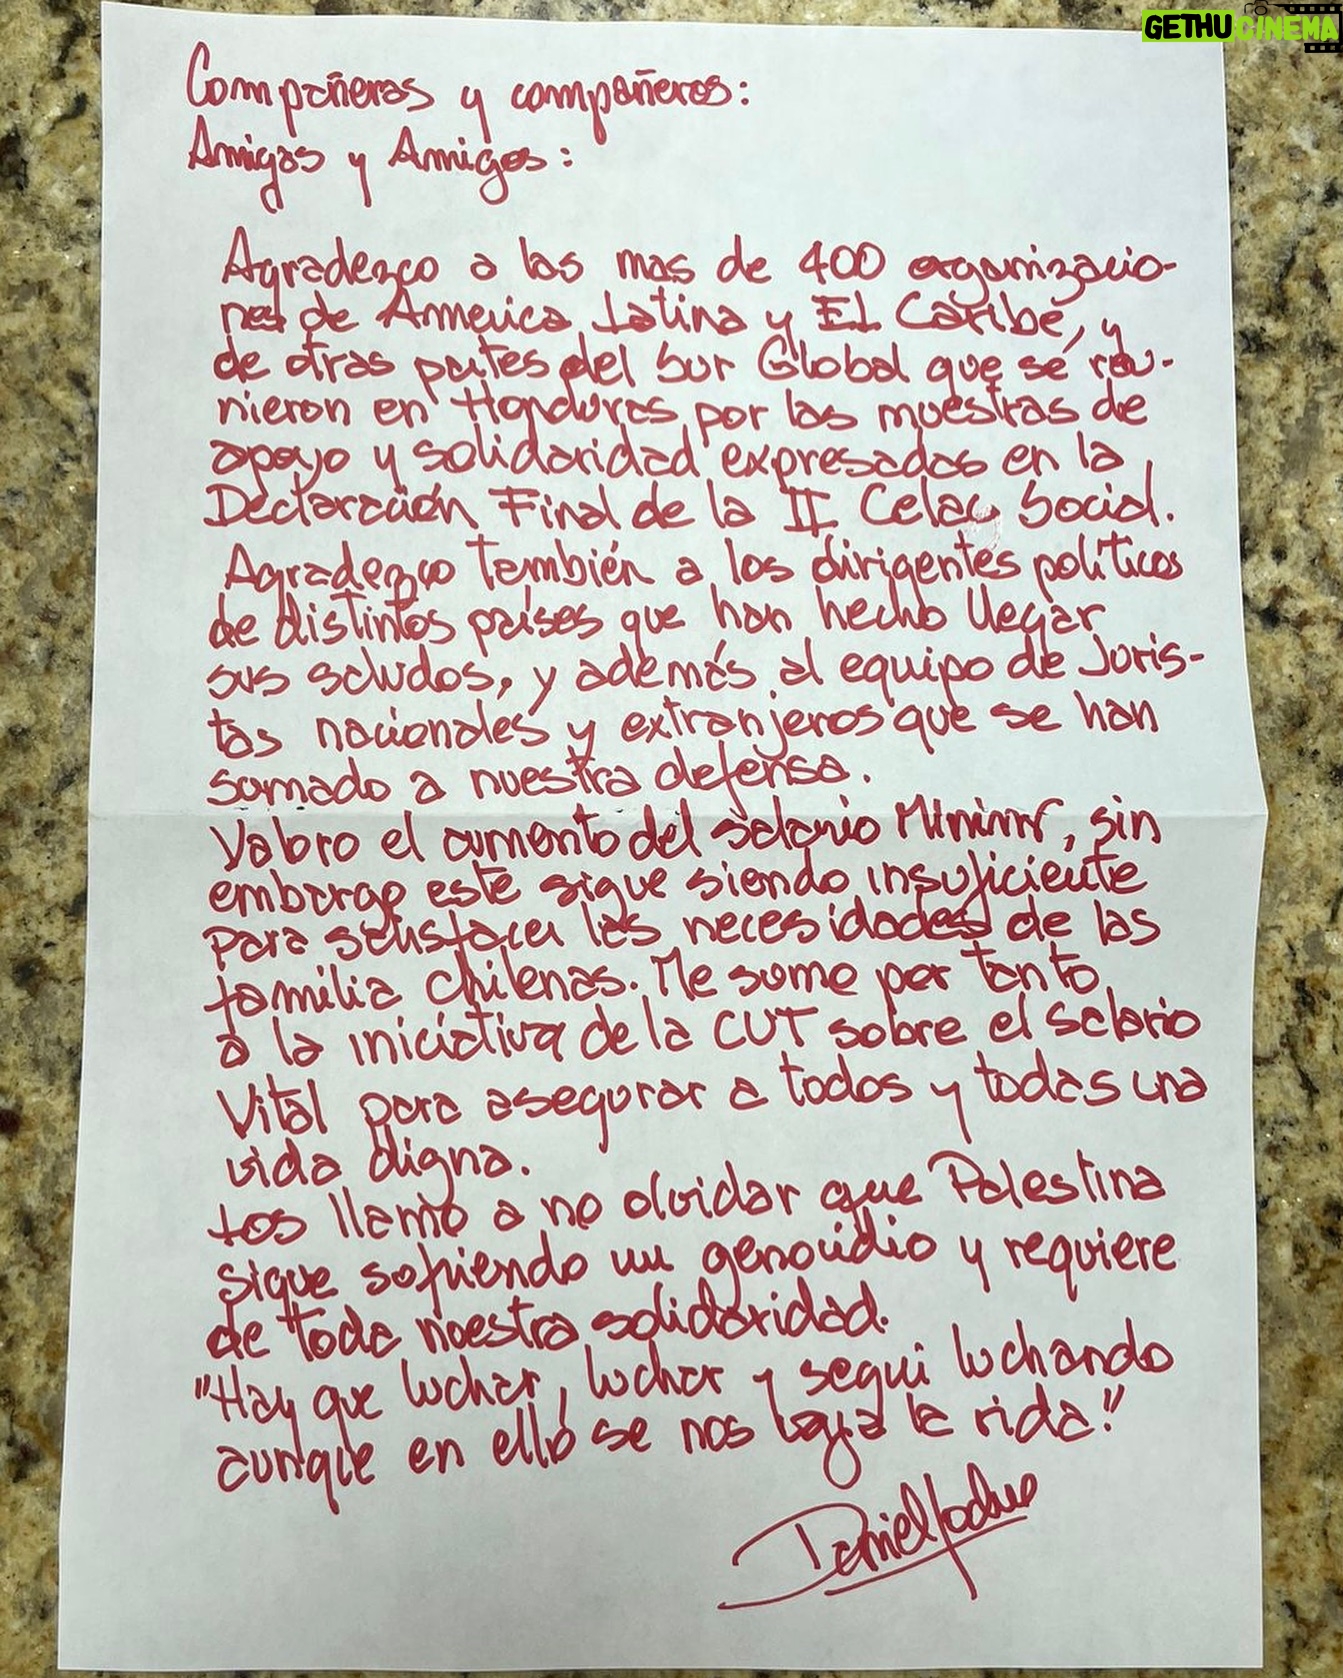 GETHUCINEMA
Compañeras y compañeros:
Amigas y Amigos:
Agradezco a las mas de 400 organizacio-
nes de America Latina y El Caribe, y
de otras partes del Sur Global que se reu-
nieron en Honduras por las muestras de
apoyo y solidaridad expresadas en la
Declaración Final de la II Celac Social.
Agradezco también a los dirigentes políticos
de distintos países que han hecho llegar
sus saludos, y además al equipo de Juris-
tas nacionales y extranjeros que se han
sumado a nuestra defensa.
Valoro el aumento del salario Minimo, sin
embargo este sigue siendo insuficiente
para satisfacer las necesidades de las
familia chilenas. Me sumo por tanto
a la iniciativa de la CUT sobre el salario
Vital para asegurar a todos y todas una
vida digna.
Los llamo a no olvidar que Palestina
sigue sufriendo un genocidio y requiere
de toda nuestra solidaridad.
"Hay que luchar, luchar y seguir luchando
aunque en ello se nos vaya la vida!"
Daniel Jadue